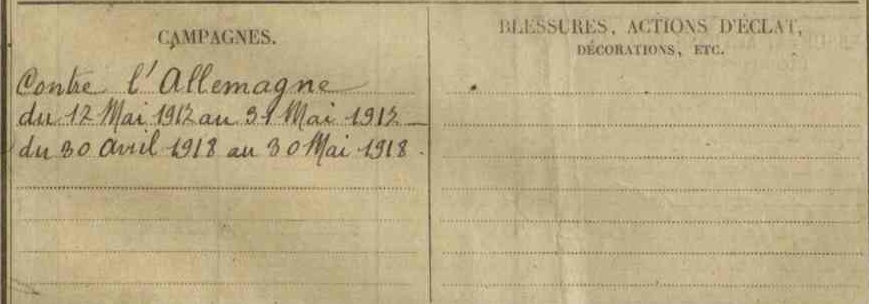 CAMPAGNES.
Contre l'Allemagne
du 12 Mai 1917 au 31 Mai 1917
du 30 avril 1918 au 30 Mai 1918.
BLESSURES, ACTIONS D'ÉCLAT,
DÉCORATIONS, ETC.